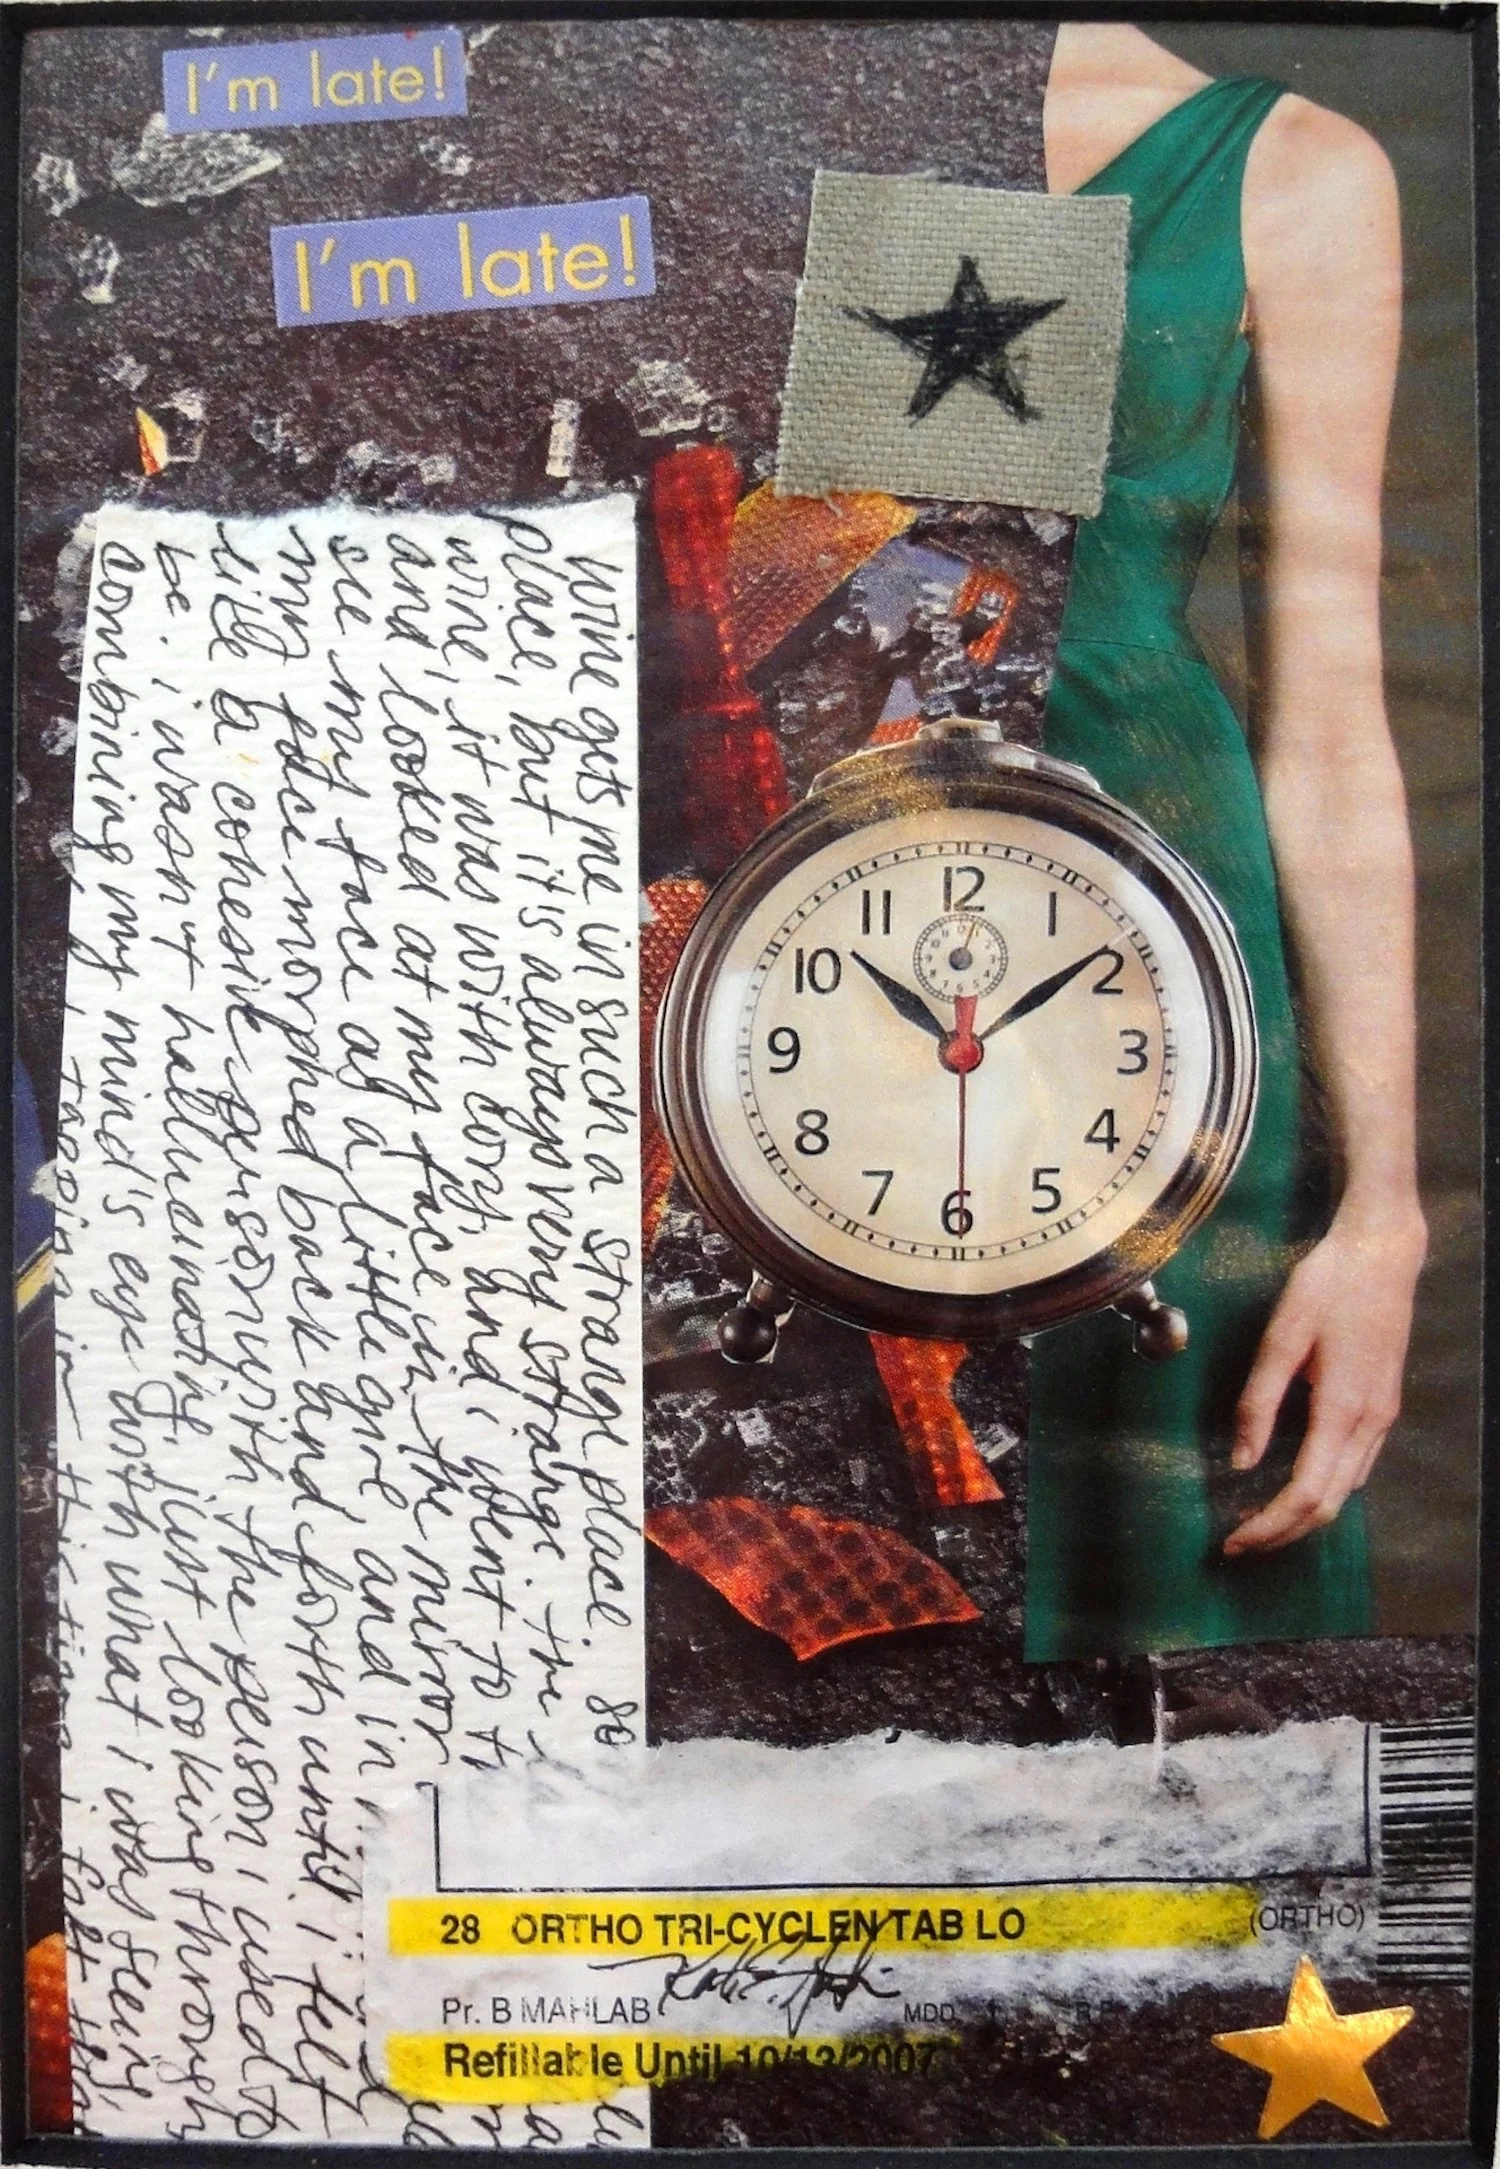 I'm late!
I'm late!
wine gets me in such a strange place. so
place, but it's always very strange. the
wine, it was with cory, and i went to
and looked at my face in the mirror
see my face as a little girl, and in
my face morphed back and forth until i felt
like a cohesive person with the person i used to
be. i wasn't hallucinating, just looking through
combining my mind's eye with what i was seeing,
tapping in this time i felt that
12
11 1
10 2
9 3
8 4
7 5
6
28 ORTHO TRI-CYCLEN TAB LO (ORTHO)
Pr. B MAHLAB MDD
Refillable Until 10/13/2007